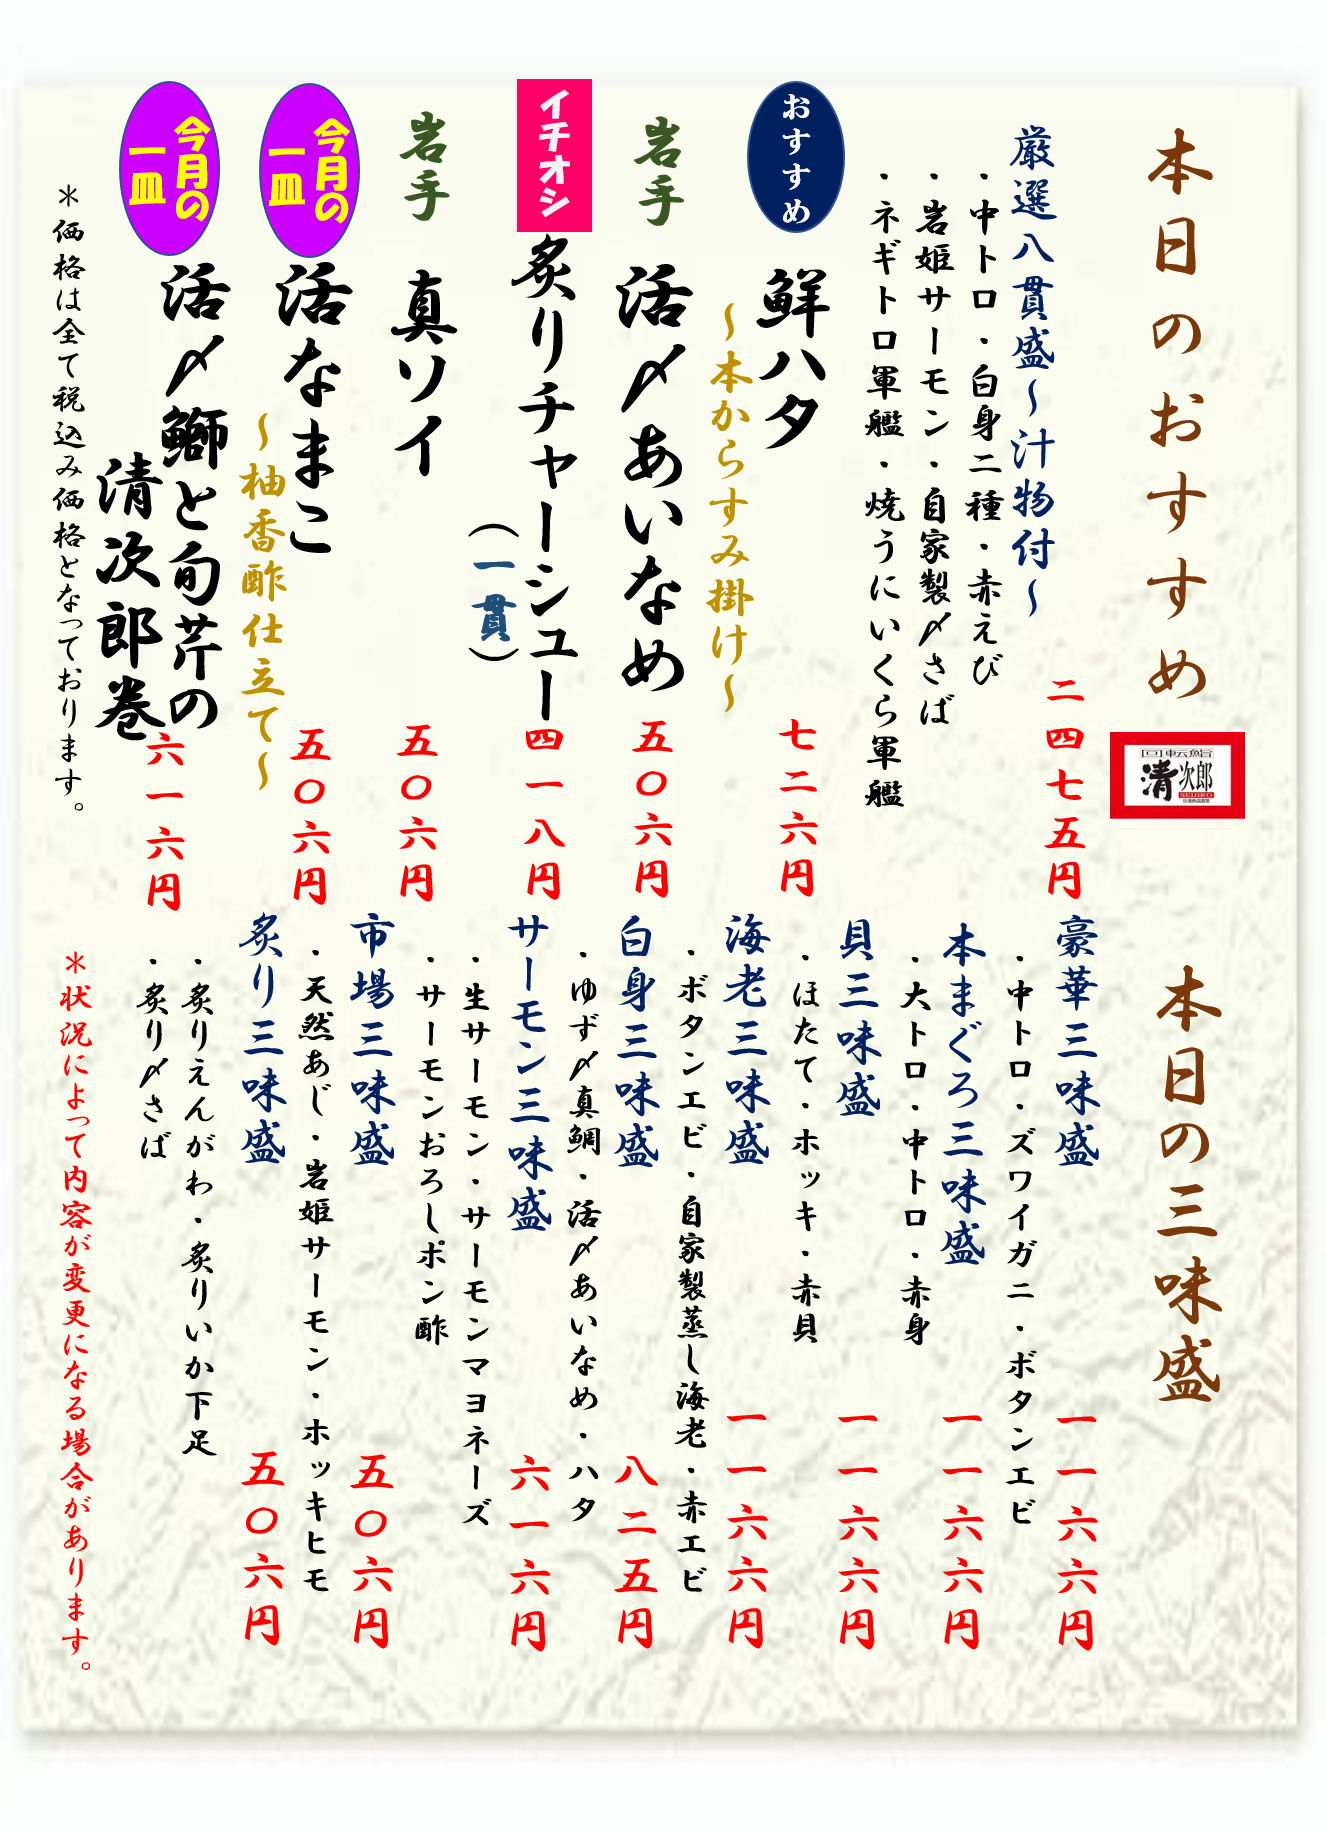 本日のおすすめ
回転鮨
清次郎
SEIJIRO
厳選八貫盛～汁物付～
二四七五円
・中トロ・白身二種・赤えび
・岩姫サーモン・自家製〆さば
・ネギトロ軍艦・焼うにいくら軍艦
おすすめ
鮮ハタ
七二六円
～本からすみ掛け～
岩手
活〆あいなめ
五〇六円
イチオシ
炙りチャーシュー
(一貫)
四一八円
岩手
真ソイ
五〇六円
今月の
一皿
活なまこ
五〇六円
～柚香酢仕立て～
今月の
一皿
活〆鰤と旬芹の
清次郎巻
六一六円
＊価格は全て税込み価格となっております。
本日の三味盛
豪華三味盛
一一六六円
・中トロ・ズワイガニ・ボタンエビ
本まぐろ三味盛
一一六六円
・大トロ・中トロ・赤身
貝三味盛
一一六六円
・ほたて・ホッキ・赤貝
海老三味盛
一一六六円
・ボタンエビ・自家製蒸し海老・赤エビ
白身三味盛
八二五円
・ゆず〆真鯛・活〆あいなめ・ハタ
サーモン三味盛
六一六円
・生サーモン・サーモンマヨネーズ
・サーモンおろしポン酢
市場三味盛
五〇六円
・天然あじ・岩姫サーモン・ホッキヒモ
炙り三味盛
五〇六円
・炙りえんがわ・炙りいか下足
・炙り〆さば
＊状況によって内容が変更になる場合があります。